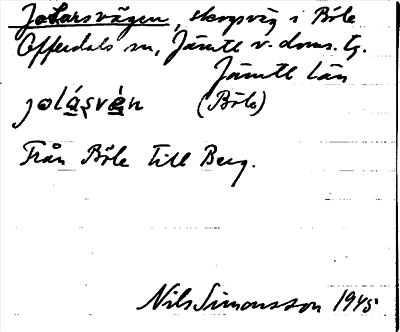 JoLarsvägen, skogsväg i Böle
Offerdals sn, Jämtl v. doms. tg.
Jämtl län
joláşvè̱n (Böle)
Från Böle till Berg.
Nils Simonsson 1945